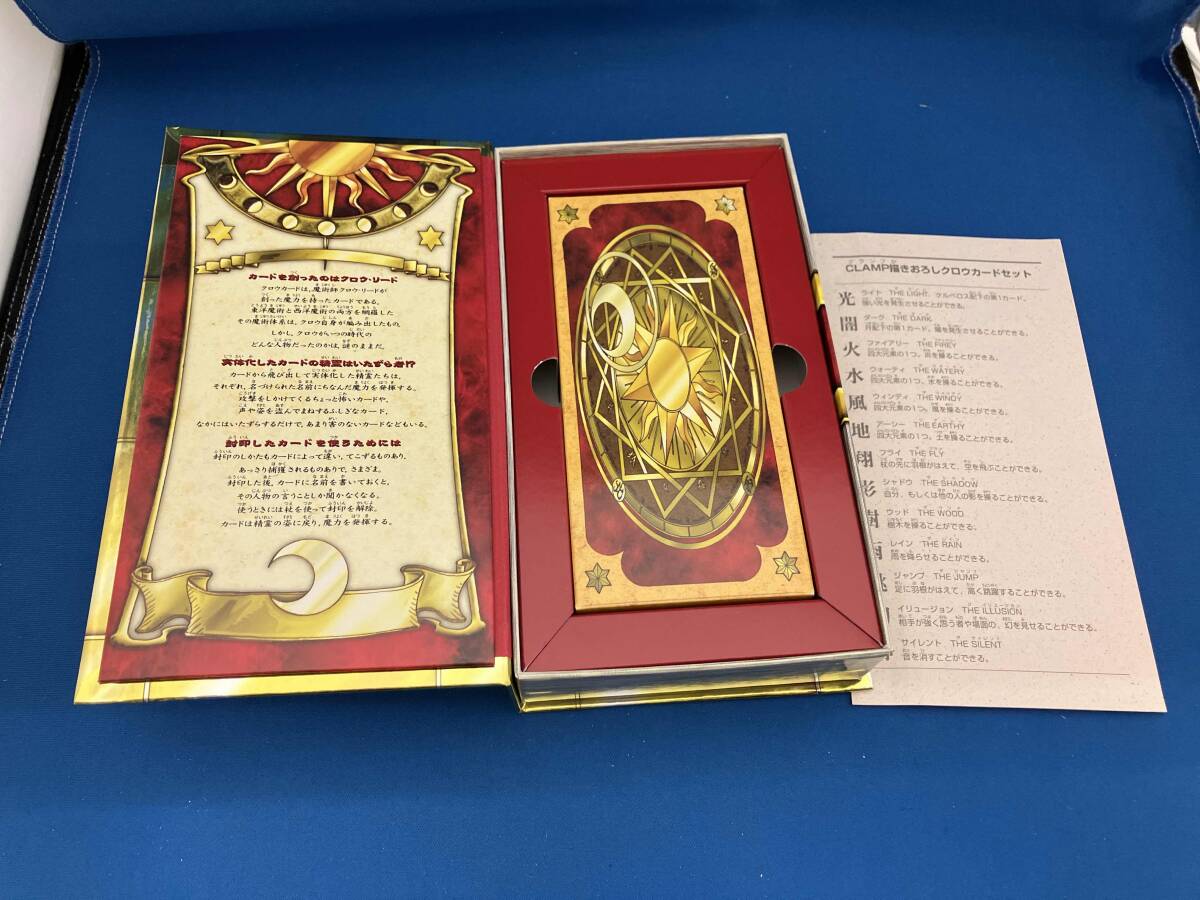 カードを創ったのはクロウ・リード
クロウカードは、魔術師クロウ・リードが
創った魔力を持ったカードである。
東洋魔術と西洋魔術の両方を網羅した
その魔術体系は、クロウ自身が編み出したもの。
しかし、クロウがいつの時代の
どんな人物だったのかは、謎のままだ。
実体化したカードの精霊はいたずら者!?
カードから飛び出して実体化した精霊たちは、
それぞれ、名づけられた名前にちなんだ魔力を発揮する。
攻撃をしかけてくるちょっと怖いカードや、
声や姿を盗んでまねするふしぎなカード、
なかにはいたずらするだけで、あまり害のないカードなどもいる。
封印したカードを使うためには
封印のしかたもカードによって違い、てこずるものあり、
あっさり捕獲されるものありで、さまざま。
封印した後、カードに名前を書いておくと、
その人物の言うことしか聞かなくなる。
使うときには杖を使って封印を解除。
カードは精霊の姿に戻り、魔力を発揮する。
CLAMP描きおろしクロウカードセット
光 ライト THE LIGHT ケルベロス配下の第1カード。
強い光を発生させることができる。
闇 ダーク THE DARK
月配下の第1カード。闇を発生させることができる。
火 ファイアリー THE FIREY
四大元素の1つ。炎を操ることができる。
水 ウォーティ THE WATERY
四大元素の1つ。水を操ることができる。
風 ウィンディ THE WINDY
四大元素の1つ。風を操ることができる。
地 アーシー THE EARTHY
四大元素の1つ。土を操ることができる。
翔 フライ THE FLY
杖の先に羽根がはえて、空を飛ぶことができる。
影 シャドウ THE SHADOW
自分、もしくは他の人の影を操ることができる。
樹 ウッド THE WOOD
樹木を操ることができる。
レイン THE RAIN
雨を降らせることができる。
ジャンプ THE JUMP
足に羽根がはえて、高く跳躍することができる。
イリュージョン THE ILLUSION
相手が強く思う者や場面の、幻を見せることができる。
サイレント THE SILENT
音を消すことができる。